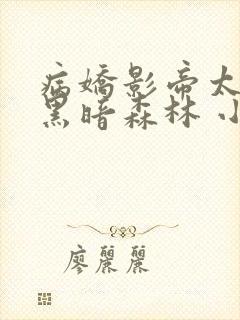 病嬌影帝太
黑暗森林 小
廖麗麗